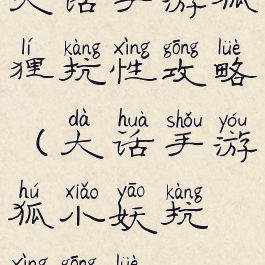 大话手游狐
lí kàng xìng gōng lüè
狸抗性攻略
dà huà shǒu yóu
（大话手游
hú xiǎo yāo kàng
狐小妖抗
xìng gōng lüè